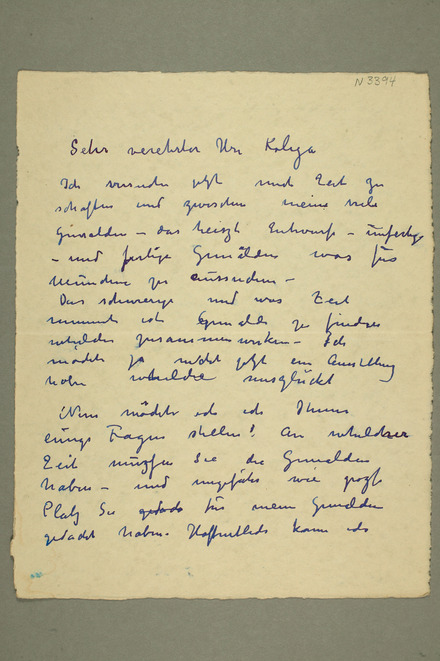 N 3394
Sehr verehrter Herr Koliga
Ich versuche jetzt mich Zeit zu
schaffen und zwischen meine viele
Gemälden – das heiszt Entwurfe – unfertige
– und fertige Gemälden was für
München zu aussuchen –
Das schwerige und was Zeit
nimmt ist Gemälde zu finden
welche zusammen wirken – Ich
möchte ja nicht jetzt ein Ausstellung
haben welche misglückt
Nun möchte ich Ihnen
einige Fragen stellen! An welcher
Zeit müszen Sie die Gemälden
haben – und ungefähr wie grosz
Platz Sie für meine Gemälden
gedacht haben. Hoffentlich kann ich